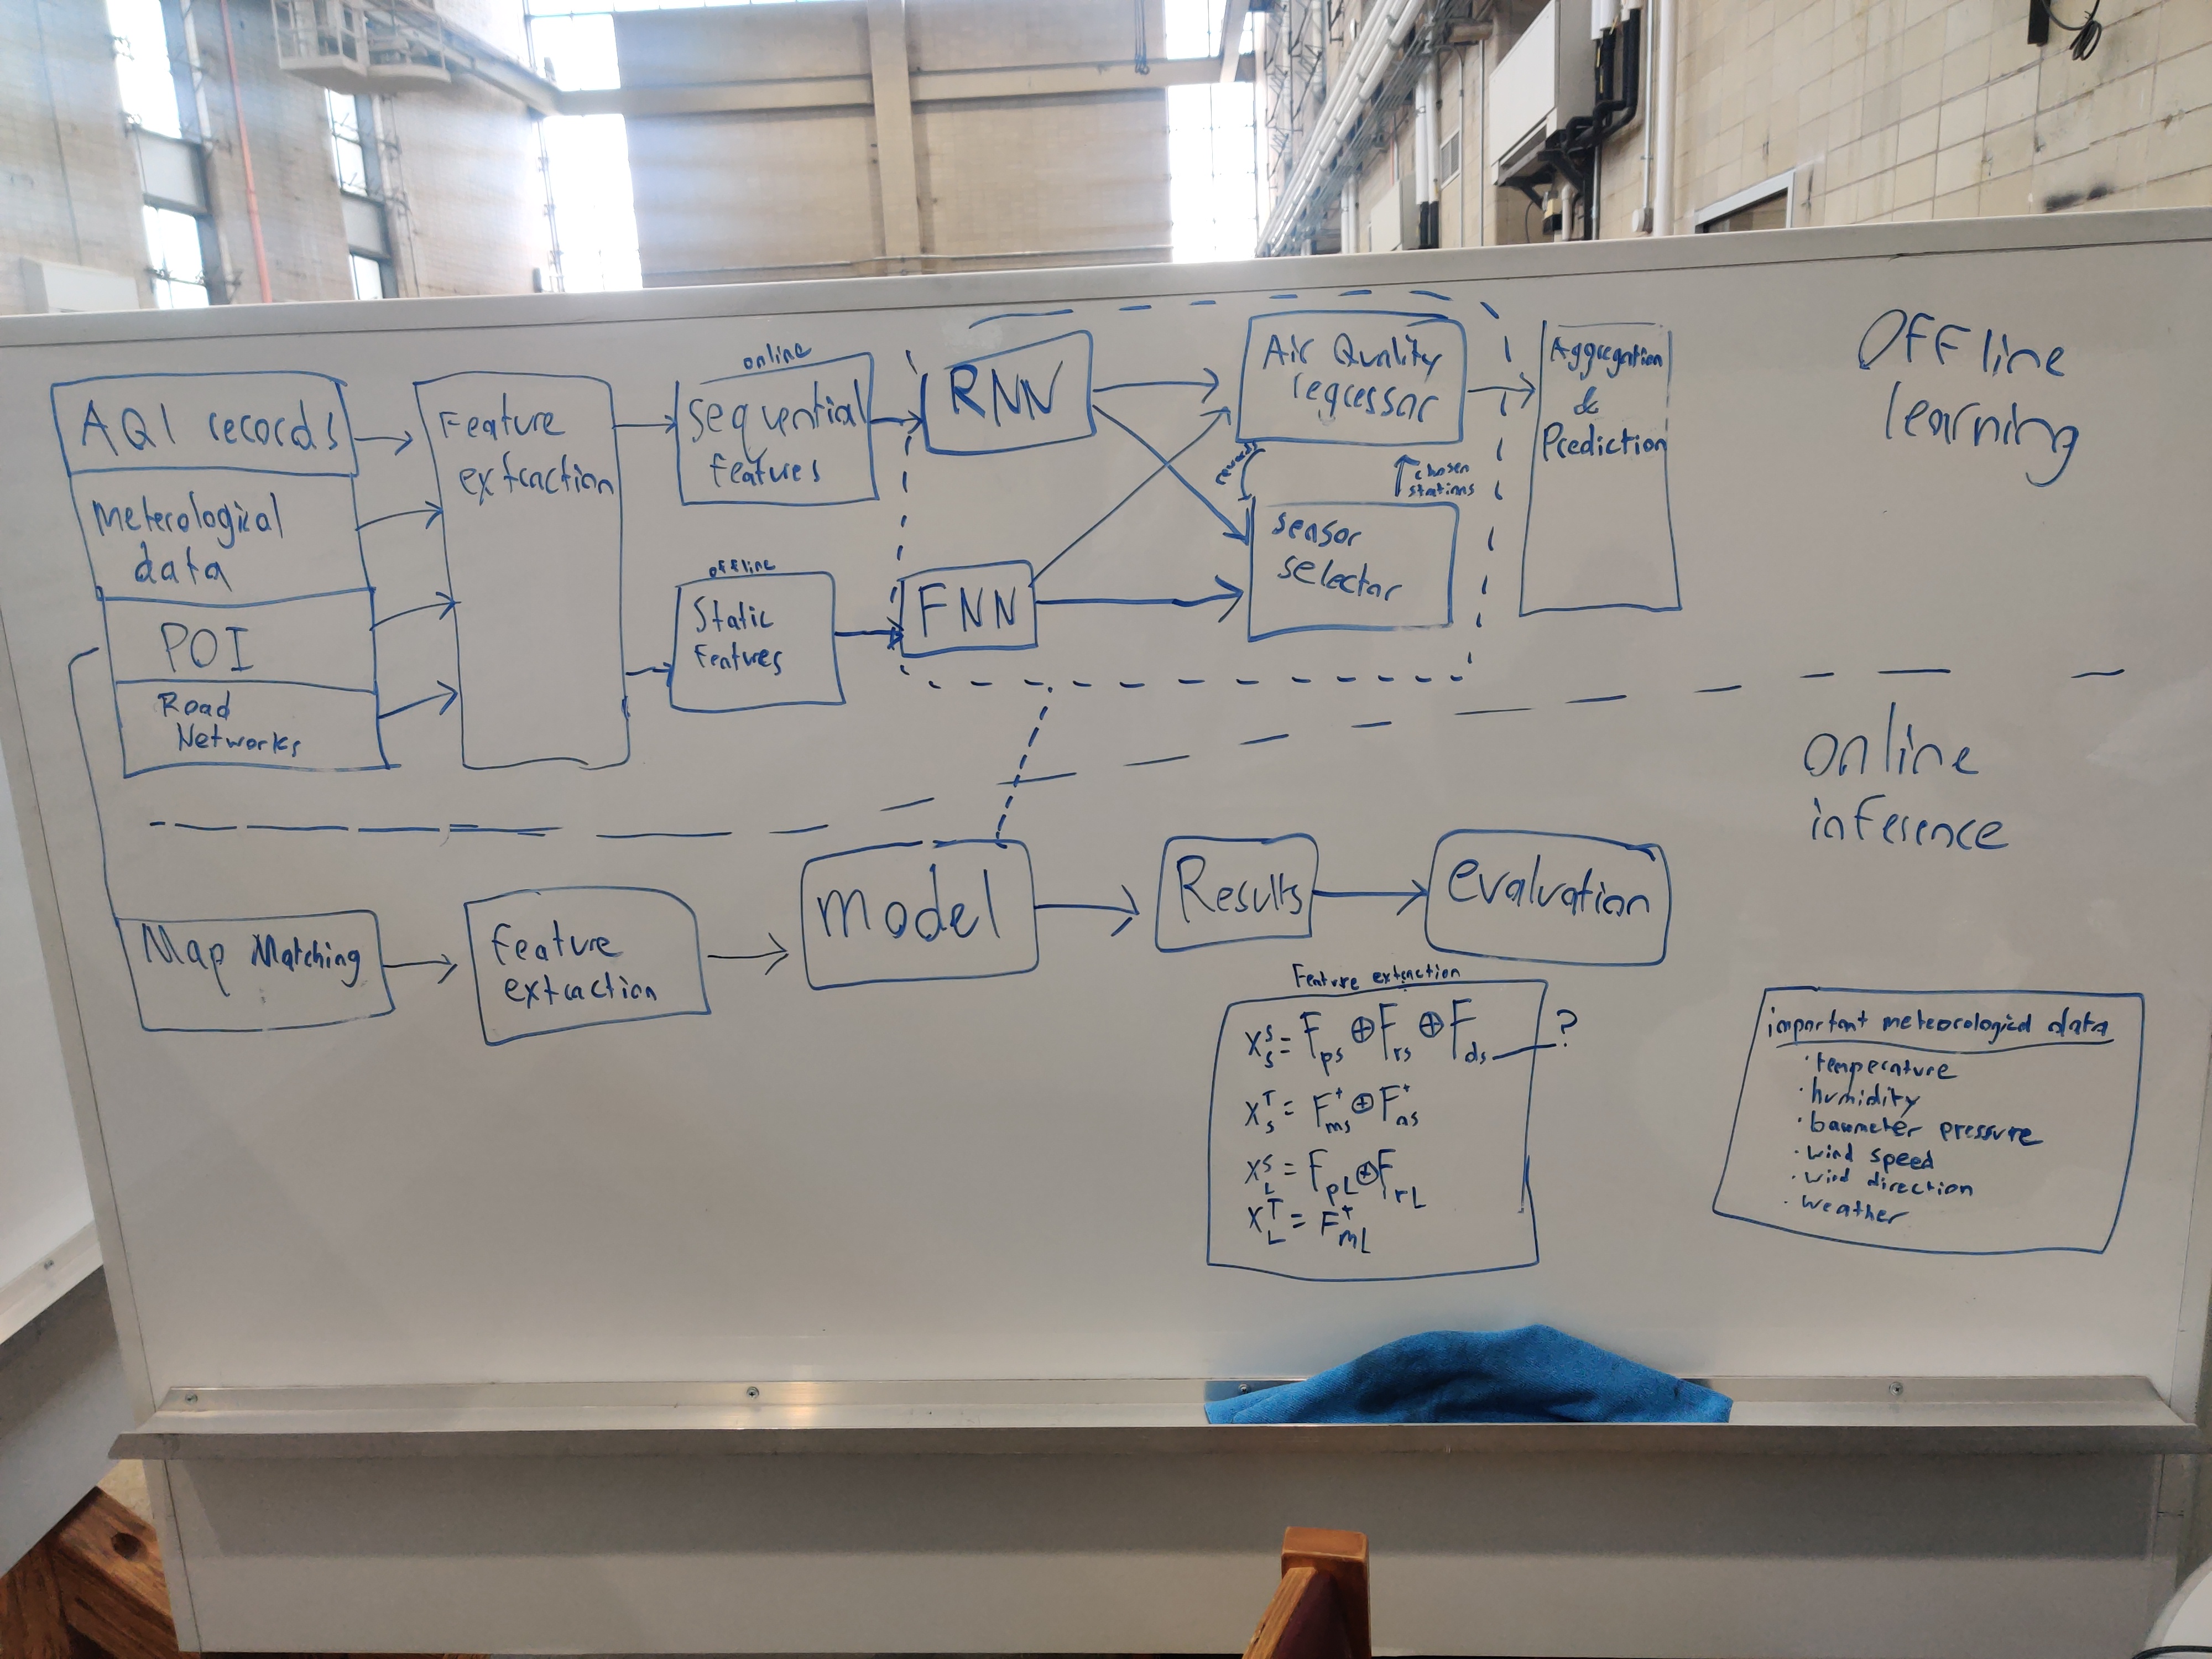 OFFline
learning
AQI records
Meterological
data
POI
Road
Networks
Feature
extraction
online
Sequential
features
offline
Static
Features
RNN
FNN
Air Quality
regressor
reward
chosen
stations
sensor
selector
Aggregation
&
Prediction
online
inference
Map Matching
feature
extraction
model
Results
evaluation
Feature extraction
X_s^S = F_ps ⊕ F_rs ⊕ F_ds ?
X_s^T = F_ms^t ⊕ F_as^t
X_L^S = F_pL ⊕ F_rL
X_L^T = F_mL^t
important meteorological data
· temperature
· humidity
· barometer pressure
· wind speed
· wind direction
· weather